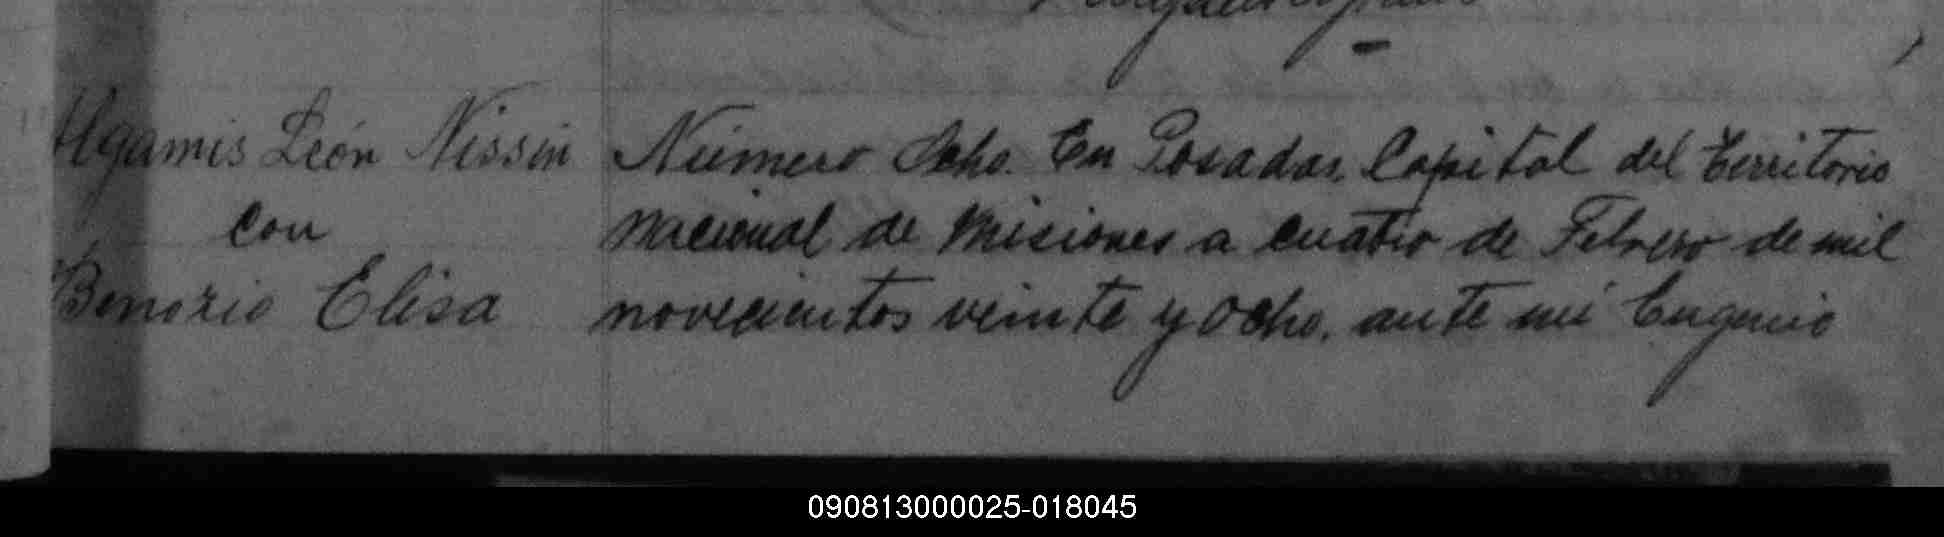 Algamis León Nissin
con
Benorio Elisa
Número Ocho. En Posadas, Capital del territorio
Nacional de Misiones a cuatro de Febrero de mil
novecientos veinte y ocho, ante mí Eugenio
090813000025-018045